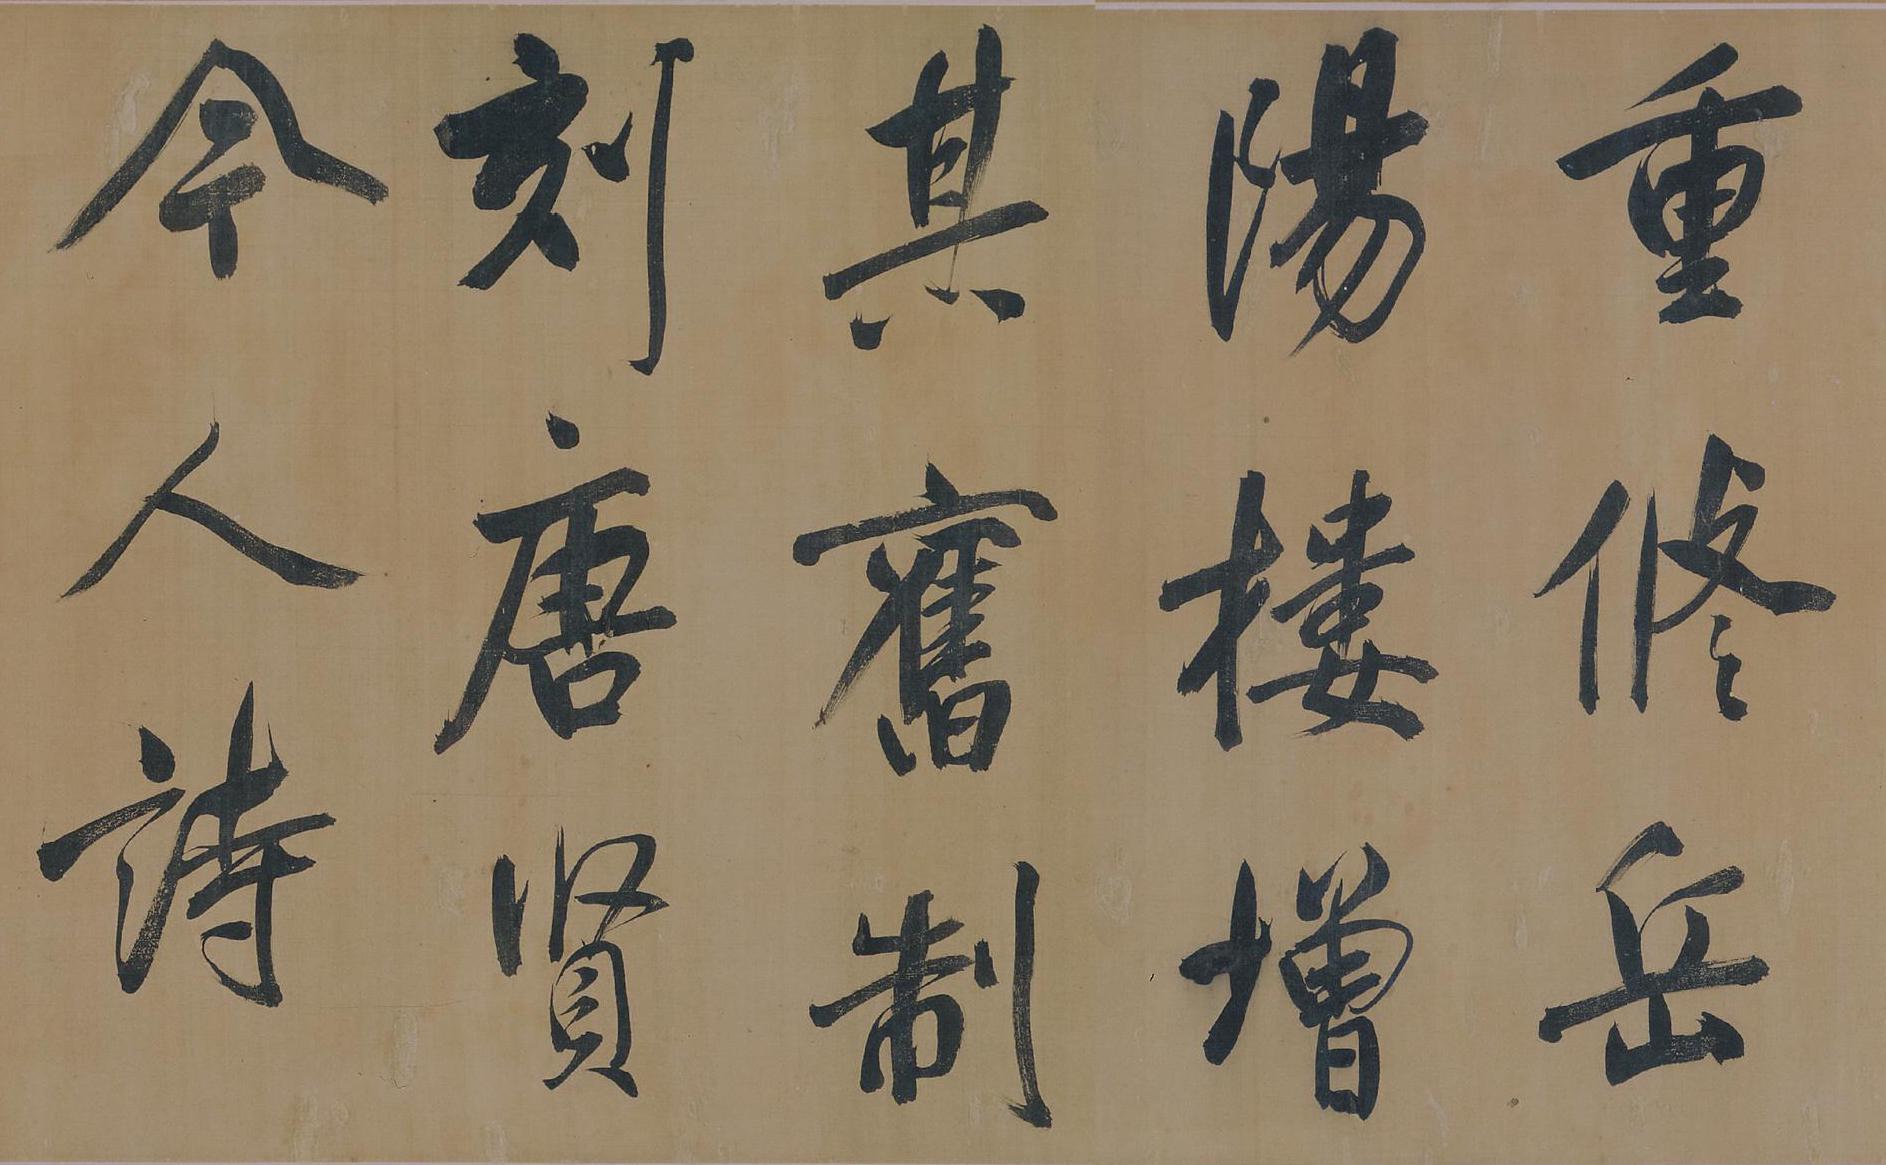 重脩岳
陽樓增
其舊制
刻唐賢
今人詩